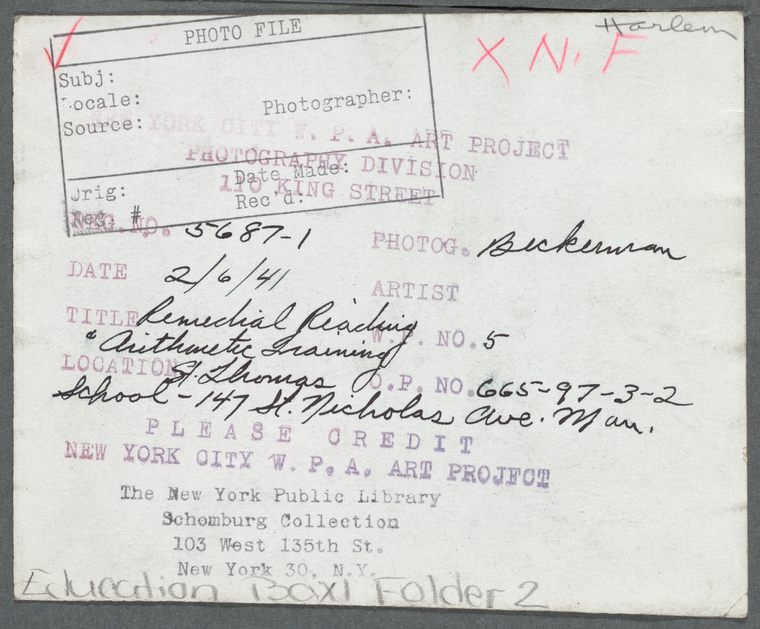 Harlem
X N.F
PHOTO FILE
Subj:
Locale:
Photographer:
Source:
YORK CITY W. P. A. ART PROJECT
PHOTOGRAPHY DIVISION
Date Made:
110 KING STREET
Orig:
Rec'd:
Neg. #
NEG. NO. 5687-1
PHOTOG. Beckerman
DATE 2/6/41
ARTIST
TITLE Remedial Reading
W.P. NO. 5
& Arithmetic Training
LOCATION St. Thomas
O.P. NO. 665-97-3-2
School - 147 St. Nicholas Ave. Man.
PLEASE CREDIT
NEW YORK CITY W. P. A. ART PROJECT
The New York Public Library
Schomburg Collection
103 West 135th St.
New York 30, N.Y.
Education Box 1 Folder 2